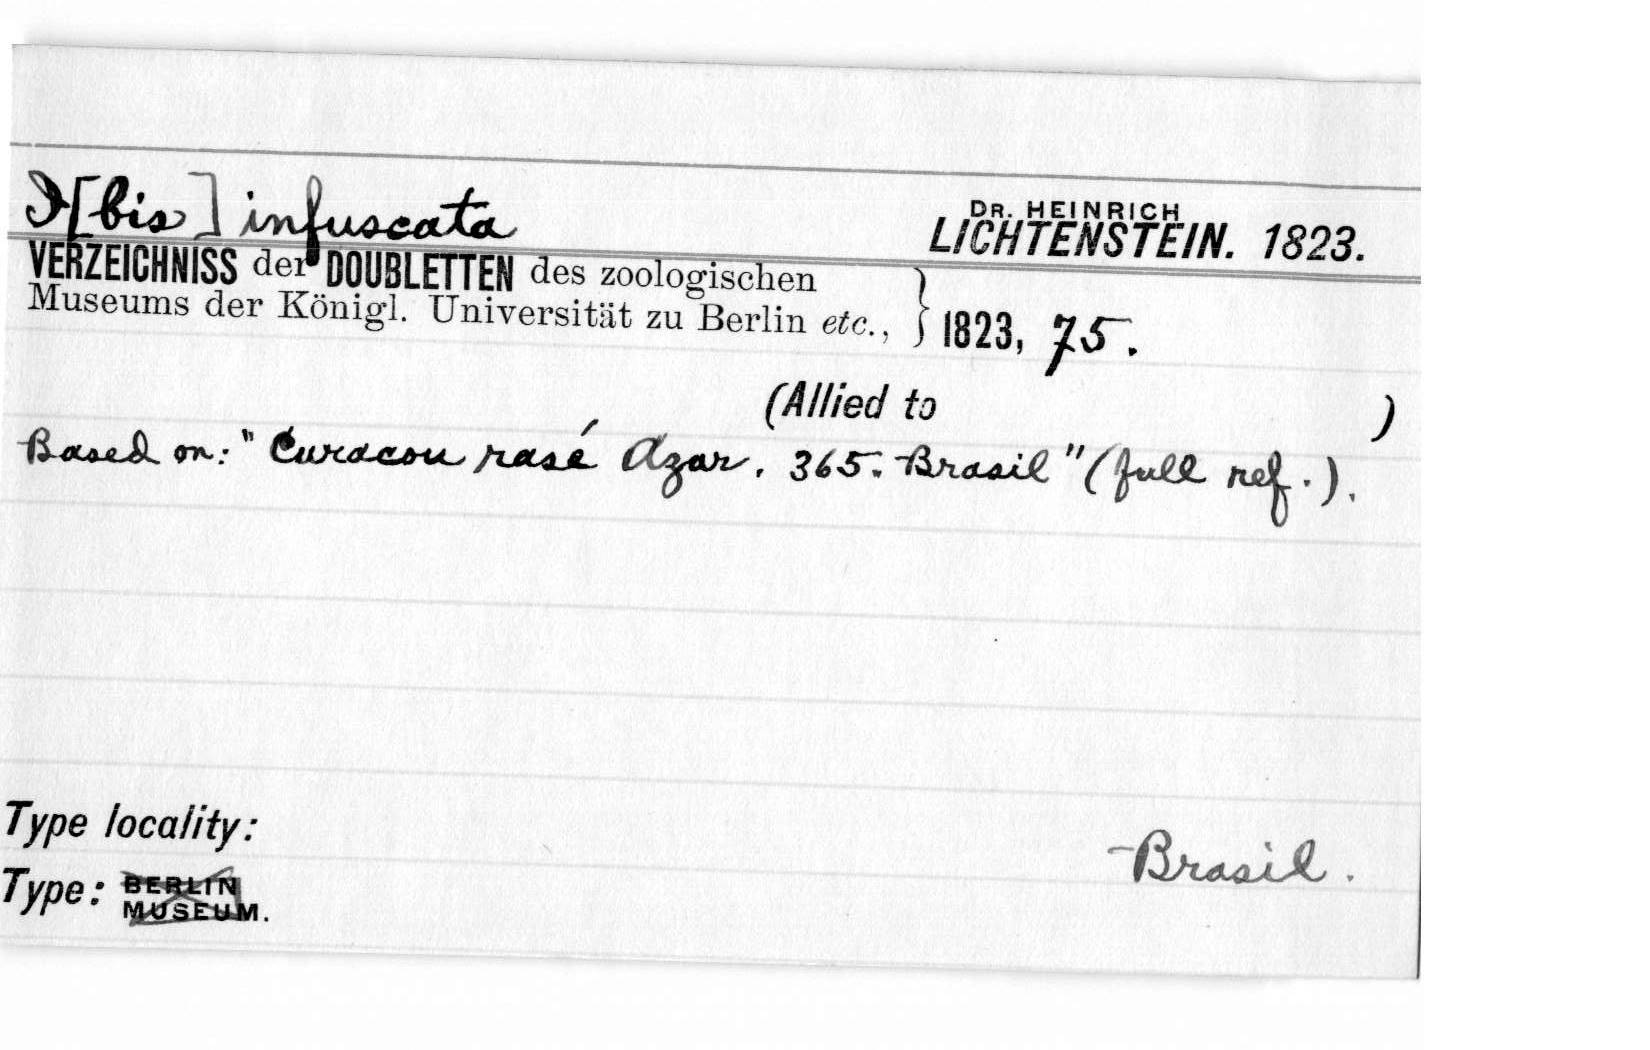 I[bis] infuscata
DR. HEINRICH
LICHTENSTEIN. 1823.
VERZEICHNISS der DOUBLETTEN des zoologischen
Museums der Königl. Universität zu Berlin etc., } 1823, 75.
(Allied to )
Based on: "Curacou rasé Azar. 365. Brasil" (full ref.).
Type locality:
Brasil.
Type: BERLIN
MUSEUM.